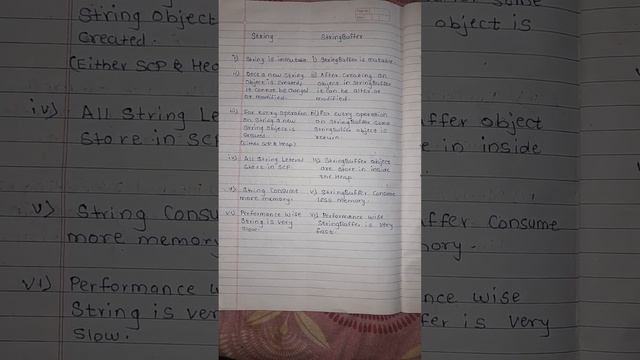 String StringBuffer
i) String is immutable i) StringBuffer is mutable.
ii) Once a new String ii) After Creating an
object is created, object in StringBuffer
it cannot be changed it can be alter or
or modified. modified.
iii) For every operation iii) For every operation
on String a new on StringBuffer same
String object is StringBuffer object is
created. return.
(Either SCP & Heap)
iv) All String Leteral iv) StringBuffer object
Store in SCP. are store in inside
the Heap.
v) String Consume v) StringBuffer Consume
more memory. less memory.
vi) Performance wise vi) Performance wise
String is very StringBuffer is very
slow. fast.
String object
Created.
(Either SCP & Hea
iv) All String Le
Store in SCP
v) String Consu
more memory
vi) Performance w
String is ver
Slow.
object is
ffer object
e in inside
ffer Consume
ory.
nce wise
fer is very